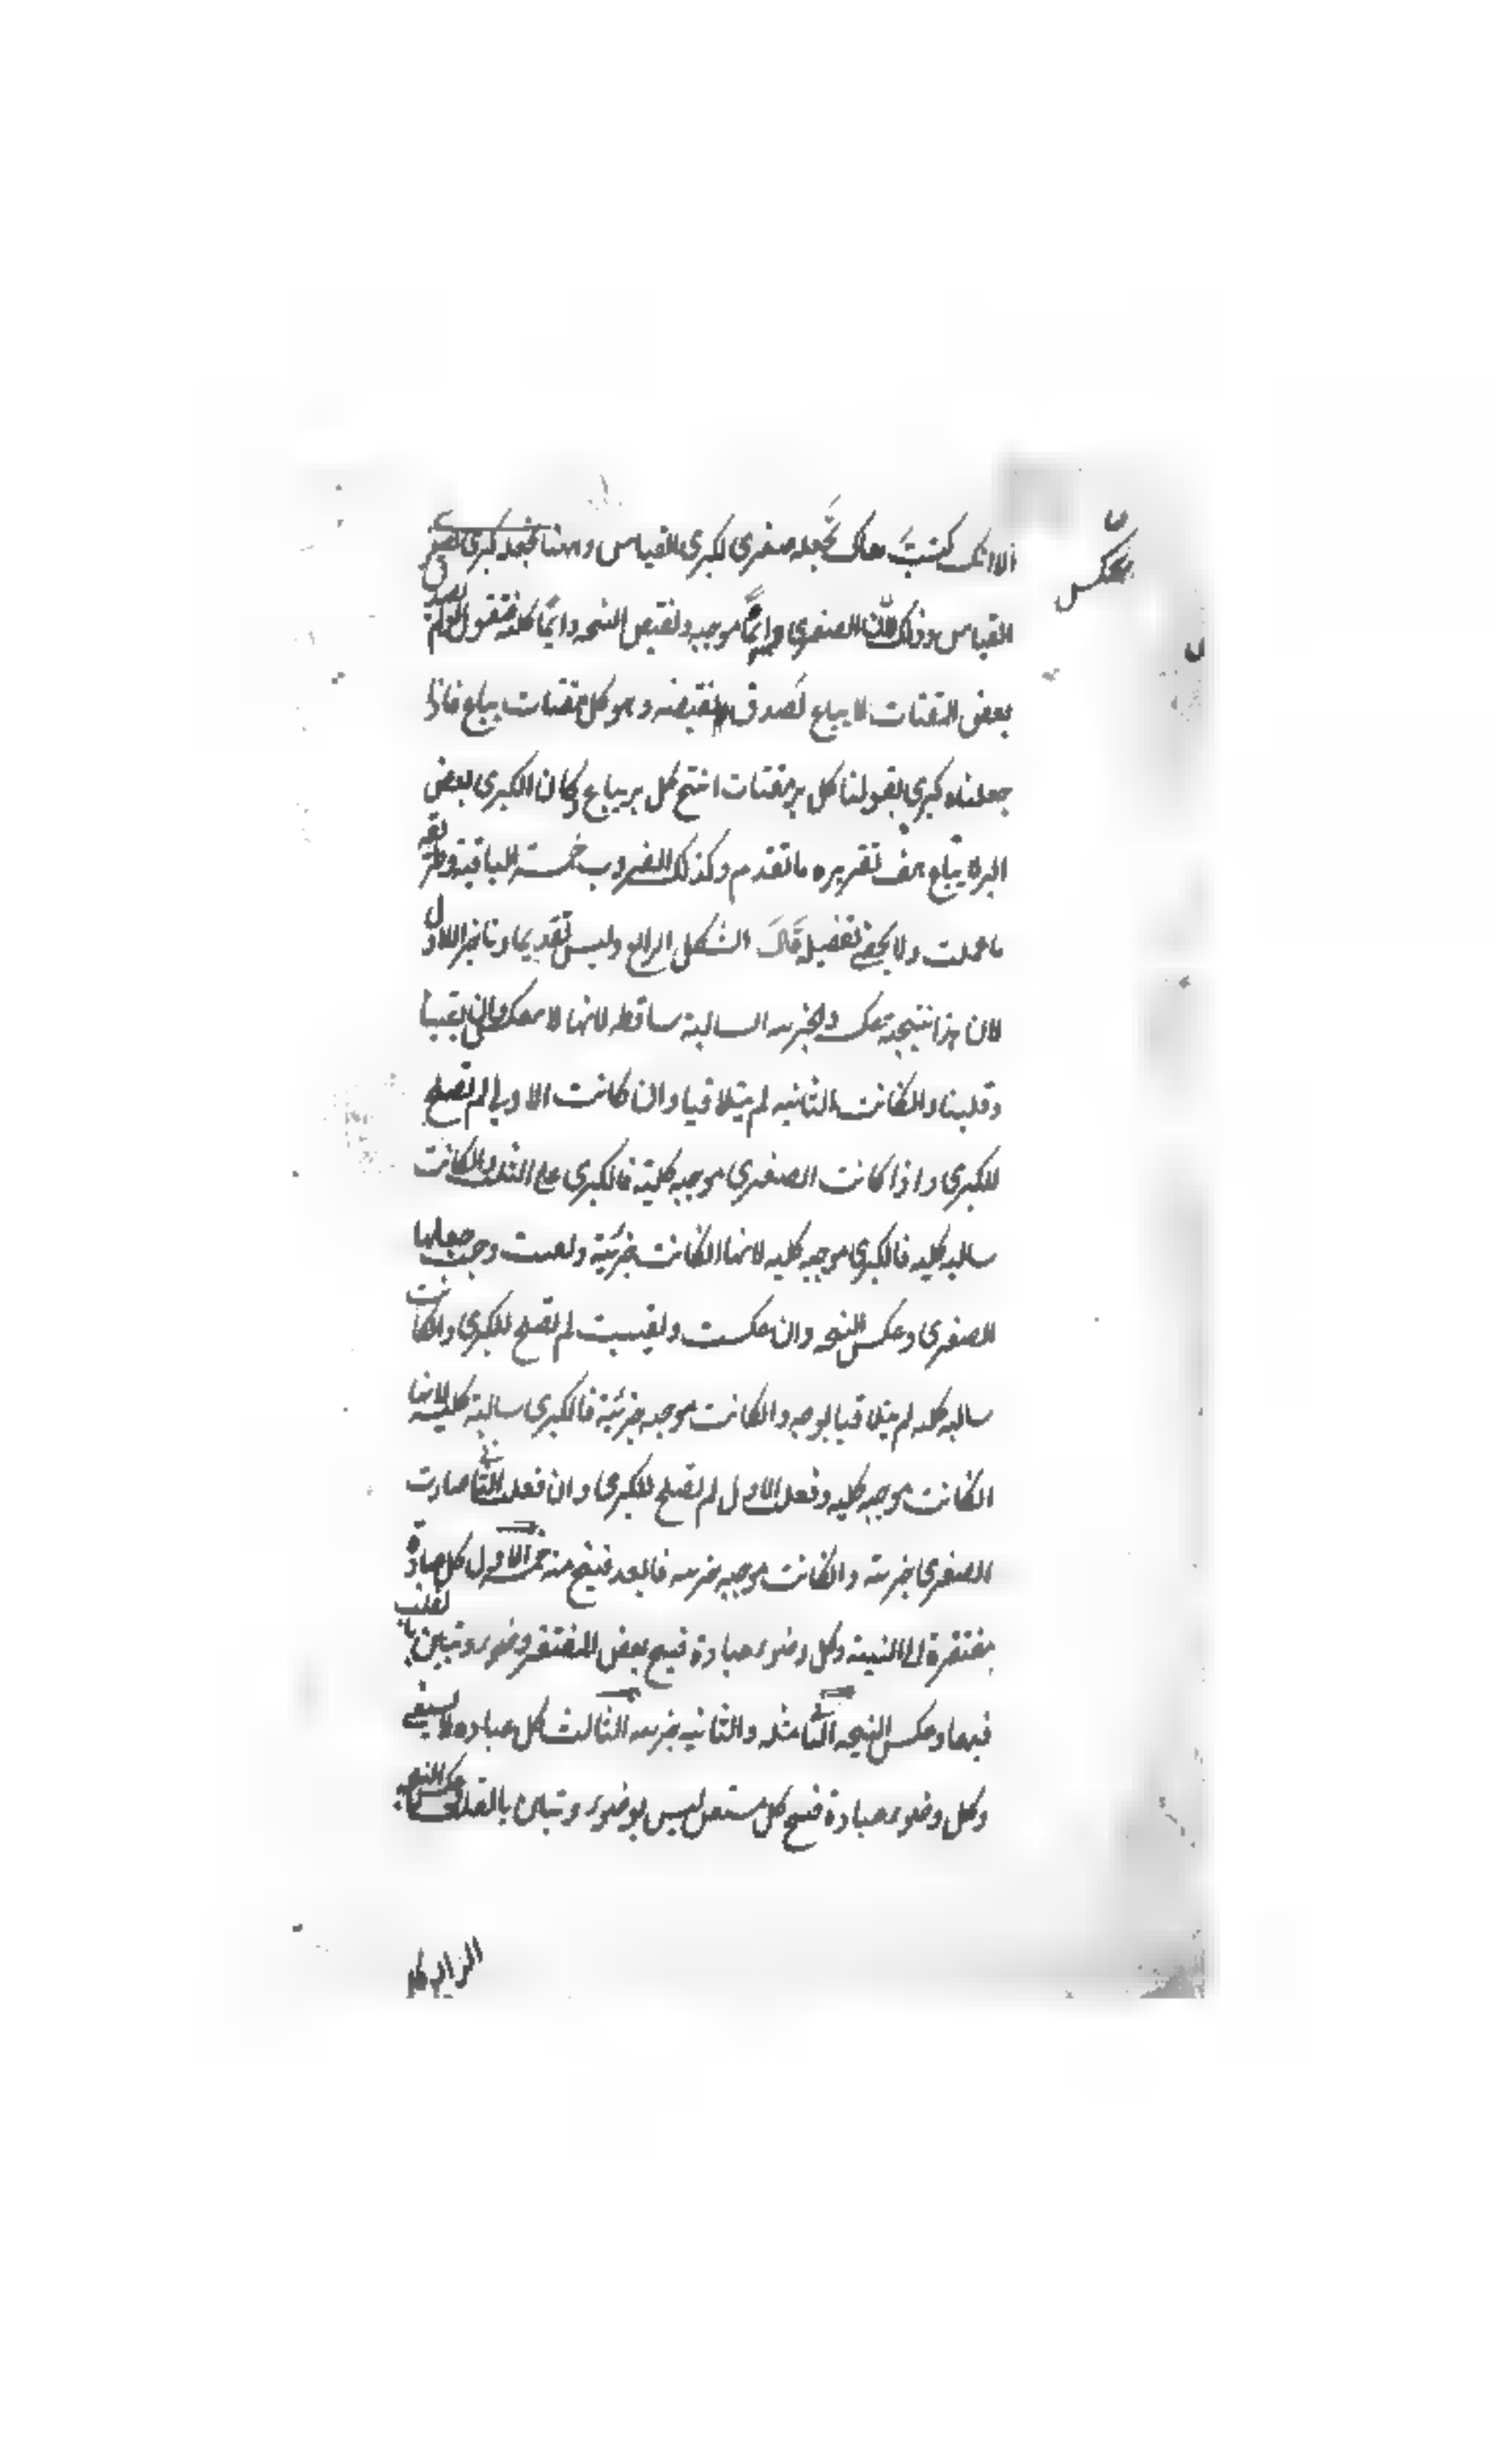 الا انك كنت هناك تجعله صغرى لكبرى القياس وههنا تجعله كبرى لصغرى
القياس وذلك لان الصغرى دائما موجبه ونقيض النتيجه دائما كليه فتقول لو لم يصدق
بعض المقتات لا يباع لصدق نقيضه وهو كل مقتات يباع فاذا
جعلناه كبرى لقولنا كل بر مقتات انتج كل بر يباع وكان الكبرى بعض
البر لا يباع هف تقريره ما تقدم وكذلك الضروب خمسة الباقية وطريقه
ما عملت ولا يخفى تفصيله قال الشكل الرابع وليس تقديما وتاخير اللاول
لان هذا نتيجة عكسه والجزئيه السالبة ساقطه لانها لا تنعكس وان بقينا
وقلبنا والكانت الثانيه لم يتلاقيا وان كانت الاولى لم تصلح
للكبرى واذا كانت الصغرى موجبه كلية فالكبرى على الثلث والكانت
سالبه كليه فالكبرى موجبه كليه لانها الكانت جزئية وبقيت وجب جعلها
الصغرى وعكس النتيجه وان عكست وبقيت لم تصلح للكبرى والكانت
سالبه كليه لم يتلاقيا بوجه والكانت موجبه جزئية فالكبرى سالبة كلية لانها
الكانت موجبه كليه وفعل الاول لم تصلح للكبرى وان فعل الثاني صارت
الصغرى جزئية والكانت موجبه جزئيه فابعد فينتج منه خمسة الاول كل عبادة
مفتقرة الى النية وكل وضوء عبادة فينتج بعض المفتقر وضوء وتبين بالقلب
فيهما وعكس النتيجه الثاني مثله والثانيه جزئيه الثالث كل عباده لا تستغني
وكل وضوء عبادة فينتج كل مستغن ليس بوضوء وتبين بالقلب وعكس النتيجه
الرابع كل